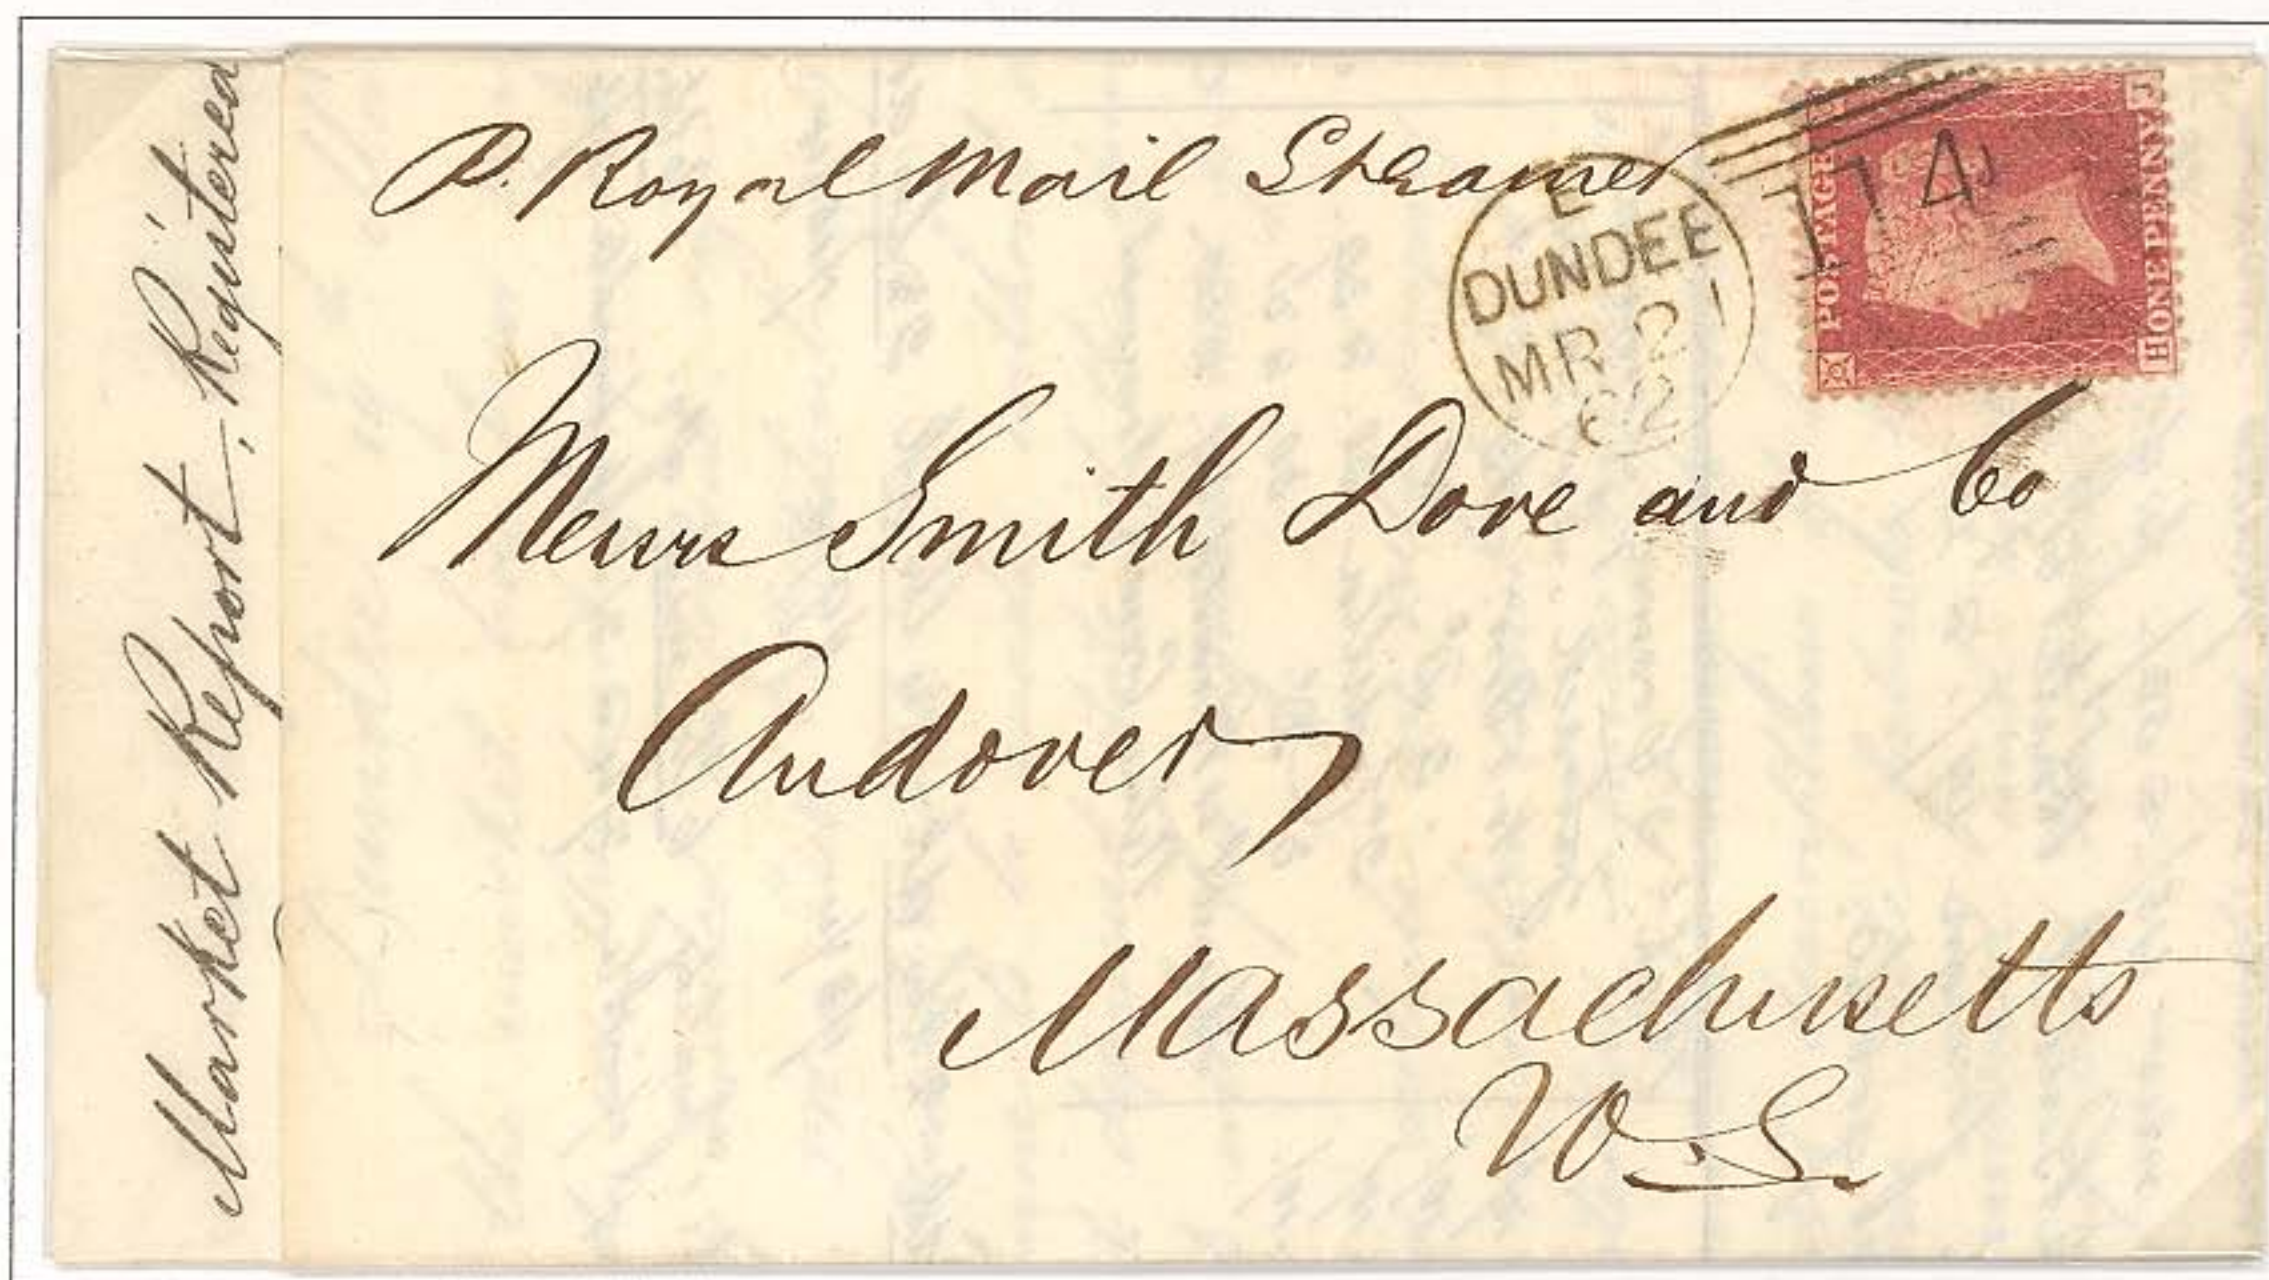 Market Report, Registered
P. Royal Mail Steamer
E
DUNDEE
MR 21
62
114
POSTAGE
ONE PENNY
J
H
Messrs Smith Dove and Co
Andover
Massachusetts
U.S.